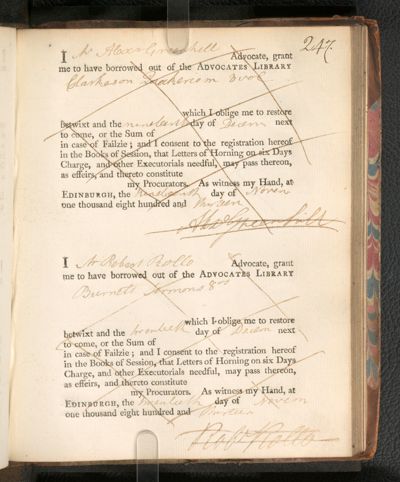 247.
I Mr Alexr Greenhill Advocate, grant
me to have borrowed out of the ADVOCATES LIBRARY
Clarkson Quakerism 3 vol
which I oblige me to restore
betwixt and the nineteenth day of Decem next
to come, or the Sum of
in case of Failzie; and I consent to the registration hereof
in the Books of Session, that Letters of Horning on six Days
Charge, and other Executorials needful, may pass thereon,
as effeirs, and thereto constitute
my Procurators. As witness my Hand, at
EDINBURGH, the nineteenth day of Novem
one thousand eight hundred and
I Mr Robert Rollo Advocate, grant
me to have borrowed out of the ADVOCATES LIBRARY
Burnett Sermons 8vo
which I oblige me to restore
betwixt and the twentieth day of Decem next
to come, or the Sum of
in case of Failzie; and I consent to the registration hereof
in the Books of Session, that Letters of Horning on six Days
Charge, and other Executorials needful, may pass thereon,
as effeirs, and thereto constitute
my Procurators. As witness my Hand, at
EDINBURGH, the twentieth day of Novem
one thousand eight hundred and
Robt Rollo